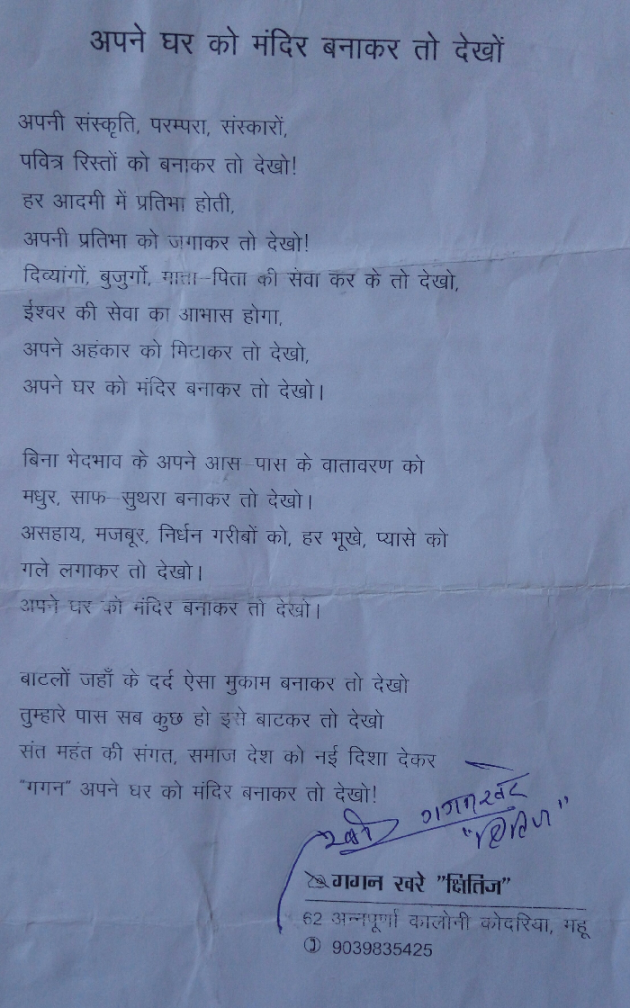 अपने घर को मंदिर बनाकर तो देखों
अपनी संस्कृति, परम्परा, संस्कारों,
पवित्र रिस्तों को बनाकर तो देखो!
हर आदमी में प्रतिभा होती,
अपनी प्रतिभा को जगाकर तो देखो!
दिव्यांगों, बुजुर्गो, माता-पिता की सेवा कर के तो देखो,
ईश्वर की सेवा का आभास होगा,
अपने अहंकार को मिटाकर तो देखो,
अपने घर को मंदिर बनाकर तो देखो।
बिना भेदभाव के अपने आस-पास के वातावरण को
मधुर, साफ-सुथरा बनाकर तो देखो।
असहाय, मजबूर, निर्धन गरीबों को, हर भूखे, प्यासे को
गले लगाकर तो देखो।
अपने घर को मंदिर बनाकर तो देखो।
बाटलों जहाँ के दर्द ऐसा मुकाम बनाकर तो देखो
तुम्हारे पास सब कुछ हो इसे बाटकर तो देखो
संत महंत की संगत, समाज देश को नई दिशा देकर
"गगन" अपने घर को मंदिर बनाकर तो देखो!
गगन खरे
"क्षितिज"
गगन खरे "क्षितिज"
62 अन्नपूर्णा कालोनी कोदरिया, महू
9039835425